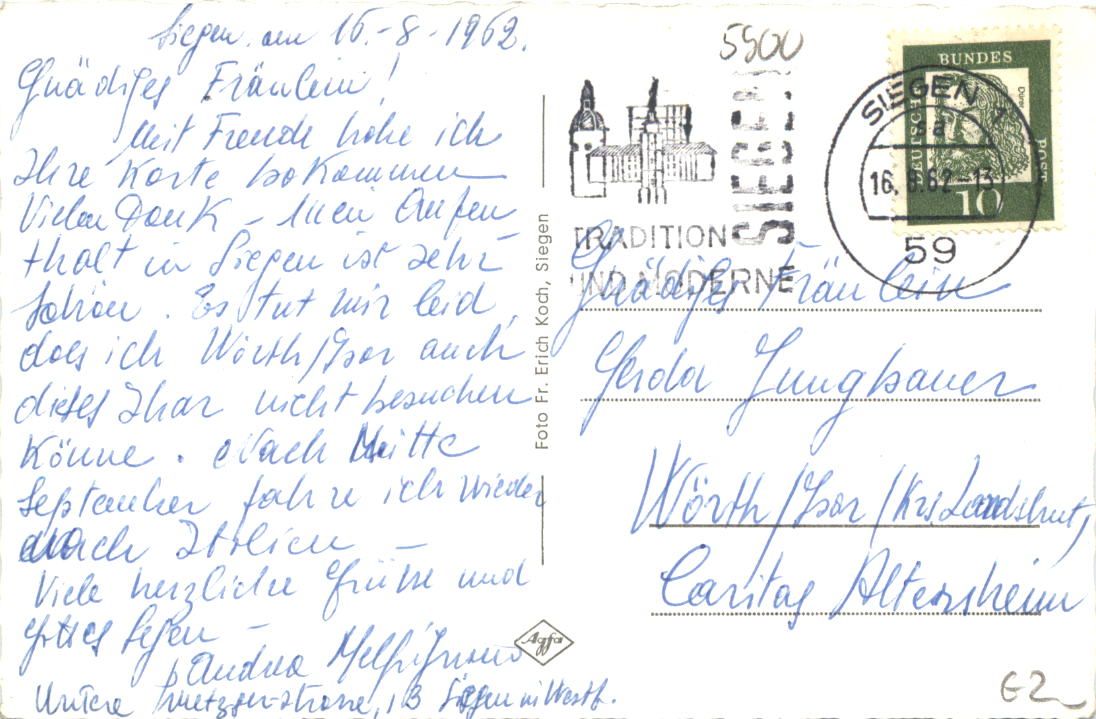 Siegen, am 16.-8-1962.
Gnädiges Fräulein!
Mit Freude habe ich
Ihre Karte bekommen
Vielen Dank – Mein Aufen
thalt in Siegen ist sehr
schön. Es tut mir leid,
dass ich Wörth/Isar auch
dieses Jhar nicht besuchen
könne. Nach Mitte
September fahre ich wieder
nach Itolien –
Viele herzliche Grüsse und
Gottes Segen –
p Andrea
Untere Metzgerstrasse, 13 Siegen in Westf.
Foto Fr. Erich Koch, Siegen
Agfa
5900
SIEGEN
TRADITION
UND MODERNE
SIEGEN 1
sa
16. 8.62-13
59
BUNDES
DEUTSCHE
POST
Dürer
10
Gnädiges Fräulein
Gerda Jungbauer
Wörth/Isar/Krs. Landshut,
Caritas Altersheim
G2